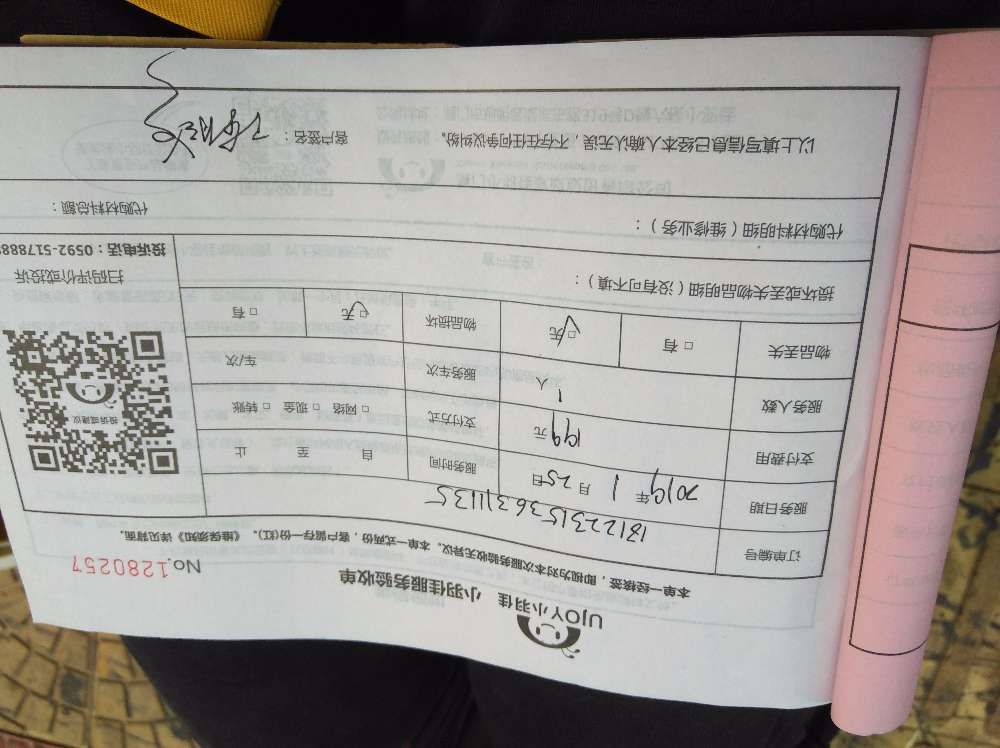 UJOY小羽佳 小羽佳服务验收单
No.1280257
本单一经核签，即视为对本次服务验收无异议。本单一式两份，客户留存一份(红)。《维保须知》详见背面。
订单编号 1812231536311135
服务日期 2019年1月25日 服务时间 自 至 止
支付费用 199元 支付方式 □网络 □现金 □转账
服务人数 1人 服务车次 车/次
物品丢失 □有 □无 物品损坏 □无 □有
扫码评价或投诉
投诉电话：0592-5178888
损坏或丢失物品明细（没有可不填）：
代购材料明细（维修业务）： 代购材料总额：
以上填写信息已经本人确认无误，不存在任何争议纠纷。 客户签名：